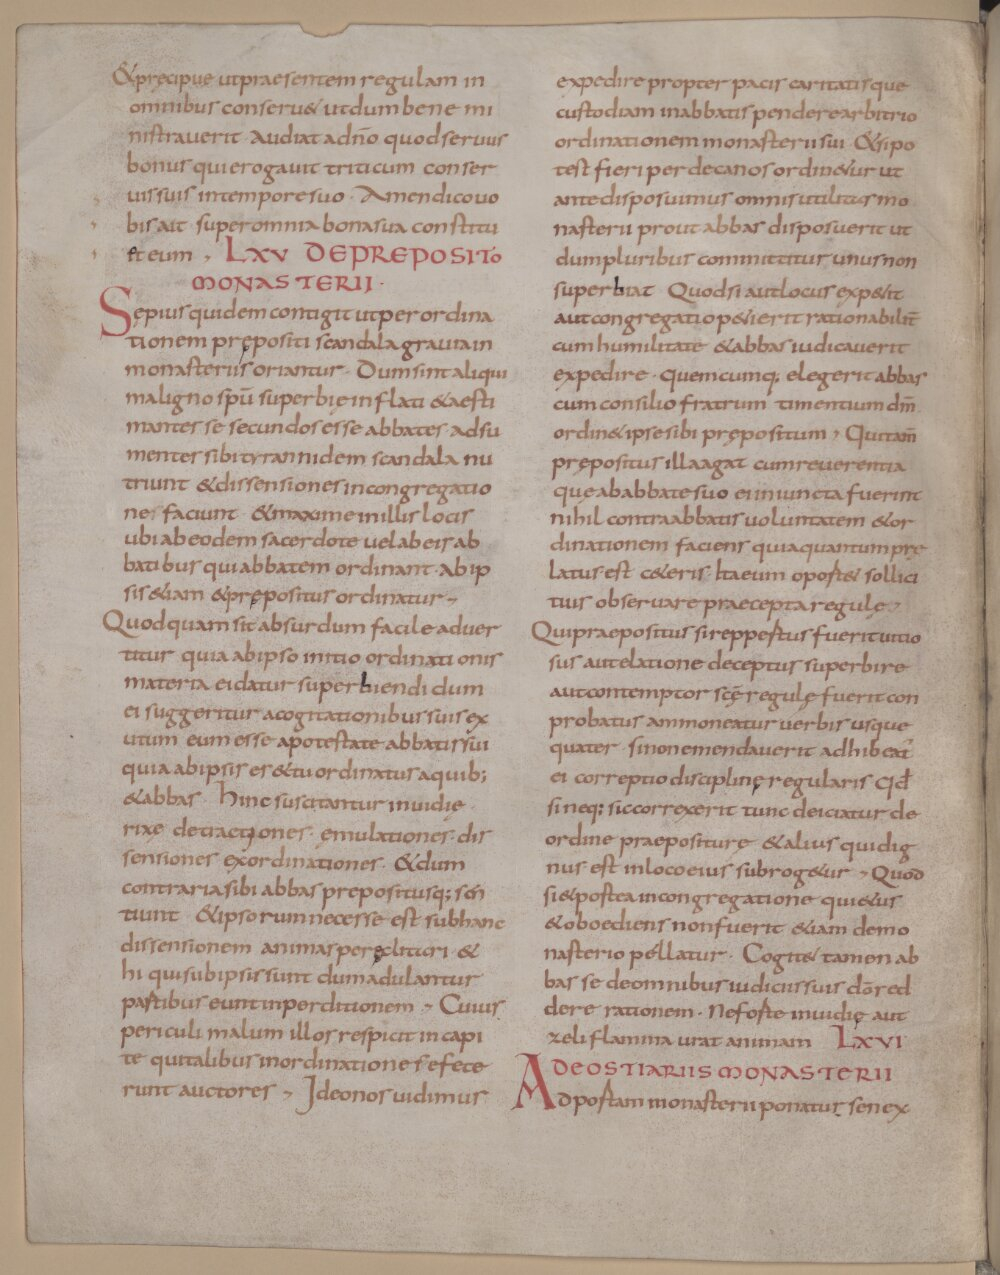 &precipue utpraesentem regulam in
omnibus conseru& utdum bene mi
nistrauerit · Audiat adño quod seruus
bonus qui erogauit triticum conser
uis suis in tempore suo · Amen dico uo
bis ait · super omnia bona sua constitu
et eum · LXV DE PREPOSITO
MONASTERII ·
Sepius quidem contigit ut per ordina
tionem prępositi scandala grauia in
monasteriis oriantur · Dum sint aliqui
maligno spū superbię inflati &aesti
mantes se secundos esse abbates · adsu
mentes sibi tyrannidem scandala nu
triunt &dissensiones in congregatio
ne faciunt · &maxime in illis locis
ubi ab eodem sacerdote uel ab eis ab
batibus qui abbatem ordinant · ab ip
sis &iam &prępositus ordinatur ·
Quod quam sit absurdum facile aduer
titur quia ab ipso initio ordinationis
materia ei datur superbiendi dum
ei suggeritur a cogitationibus suis ex
utum eum esse a potestate abbatis sui
quia ab ipsis es &tu ordinatus a quib;
&abbas · hinc suscitantur inuidię ·
rixę detractiones · ęmulationes · dis
sensiones exordinationes · &dum
contraria sibi abbas prepositusq; sen
tiunt · &ipsorum necesse est sub hanc
dissensionem animas periclitari &
hi qui sub ipsis sunt dum adulantur
partibus eunt in perditionem · Cuius
periculi malum illos respicit in capi
te qui talibus in ordinatione se fece
runt auctores · Ideo nos uidimus
expedire propter pacis caritatisque
custodiam in abbatis pendere arbitrio
ordinationem monasterii sui · &si po
test fieri per decanos ordin&ur ut
ante disposuimus omnis utilitas mo
nasterii prout abbas disposuerit ut
dum pluribus committitur unus non
superbiat · Quod si aut locus exp&it
aut congregatio p&ierit rationabilit̄
cum humilitate &abbas iudicauerit
expedire · quemcumq; elegerit abbas
cum consilio fratrum timentium dm̄
ordin& ipse sibi prępositum · Qui tam̄
prępositus illa agat cum reuerentia
que ab abbate suo ei iniuncta fuerint
nihil contra abbatis uoluntatem &or
dinationem faciens quia quantum pre
latus est c&eris · Ita eum oport& sollici
tius obseruare praecepta regulę ·
Qui praepositus si reppertus fuerit uitio
sus aut elatione deceptus superbire
aut contemptor scę regulę fuerit con
probatus ammoneatur uerbis usque
quater · si non emendauerit adhibeat̄
ei correptio disciplinę regularis Qd
si neq; sic correxerit tunc deiciatur de
ordine praepositurę &alius qui dig
nus est in loco eius subrog&ur · Quod
si &postea in congregatione qui&us
&oboediens non fuerit &iam de mo
nasterio pellatur · Cogit& tamen ab
bas se de omnibus iudiciis suis dō red
dere rationem · Ne forte inuidię aut
zeli flamma urat animam LXVI
DE OSTIARIIS MONASTERII
Ad portam monasterii ponatur senex